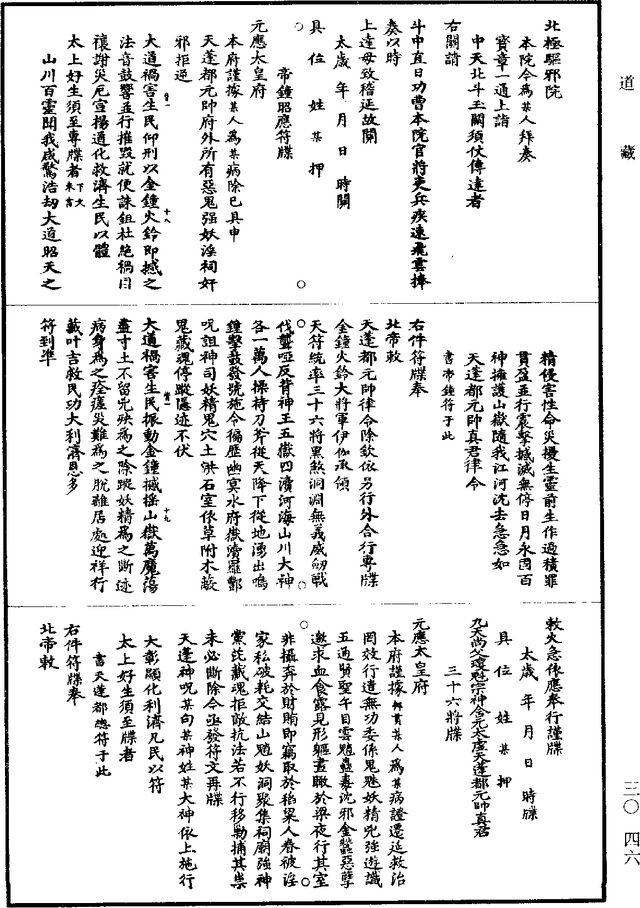 道藏
北極驅邪院
本院今為某人拜奏
寶章一通上詣
中天北斗玉闕須仗傳達者
右關請
斗中直日功曹本院官將吏兵疾速飛雲捧
奏以時
上達毋致稽延故關
太歲 年 月 日 時關
具位 姓 某 押
帝鐘昭應符牒
元應太皇府
本府謹據某人為某病除已具申
天蓬都元帥府外所有惡鬼强妖淫祠奸
邪拒逆
大道禍害生民仰刑以金鐘火鈴即撼之
法音鼓響並行摧毁就便誅鉏杜絕禍目
禳謝災厄宣揚道化救濟生民以體
太上好生須至專牒者
山川百靈聞我咸驚浩劫大道昭天之
精侵害性命災擾生靈前生作過積罪
貫盈並行震擊撼滅無停日月永固百
神擁護山嶽隨我江河沈去急急如
天蓬都元帥真君律令
書帝鐘符于此
右件符牒奉
北帝敕
天蓬都元帥律令除欽依另行外合行專牒
金鐘火鈴大將軍伊伽承領
天符統率三十六將黑煞洞淵無義威劒戰
伐聾啞反背神王五嶽四瀆河海山川大神
各一萬人操持刀斧從天降下從地湧出鳴
鐘擊鼓發號施令徧歷幽冥水府嶽瀆羅酆
呪詛神司妖精鬼穴土洪石室依草附木蔽
鬼藏魂停蹤隱迹不伏
大道禍害生民振動金鐘撼搖山嶽萬魔蕩
盡寸土不留兇殃為之除蹤妖精為之斷迹
病身為之痊瘥災難為之脫離居處迎祥行
藏叶吉救民功大利濟恩多
符到準
敕火急依應奉行謹牒
太歲 年 月 日 時牒
具位 姓 某 押
九天尚父宗神令元太虛天蓬都元帥真君
三十六將牒
元應太皇府
本府謹據鄉貫某人為某病證遷延救治
罔效行遣無功委係鬼魅妖精兇强遊識
五通賢聖午目雲魈蠱毒沈邪金蠶惡孽
邀求血食露見形軀晝瞰於梁夜行其室
非攝奔於財賄即竊取於稻粱人眷被淫
家私破耗交結山魈妖洞聚集祠廟強神
黨芘藏魂拒敵抗法若不行移勦捕其祟
未必斷除今亟發符文再牒
天蓬神呪某句某神姓某大神依上施行
大彰顯化利濟凡民以符
太上好生須至牒者
書天蓬都總符于此
右件符牒奉
北帝敕
三〇 四六